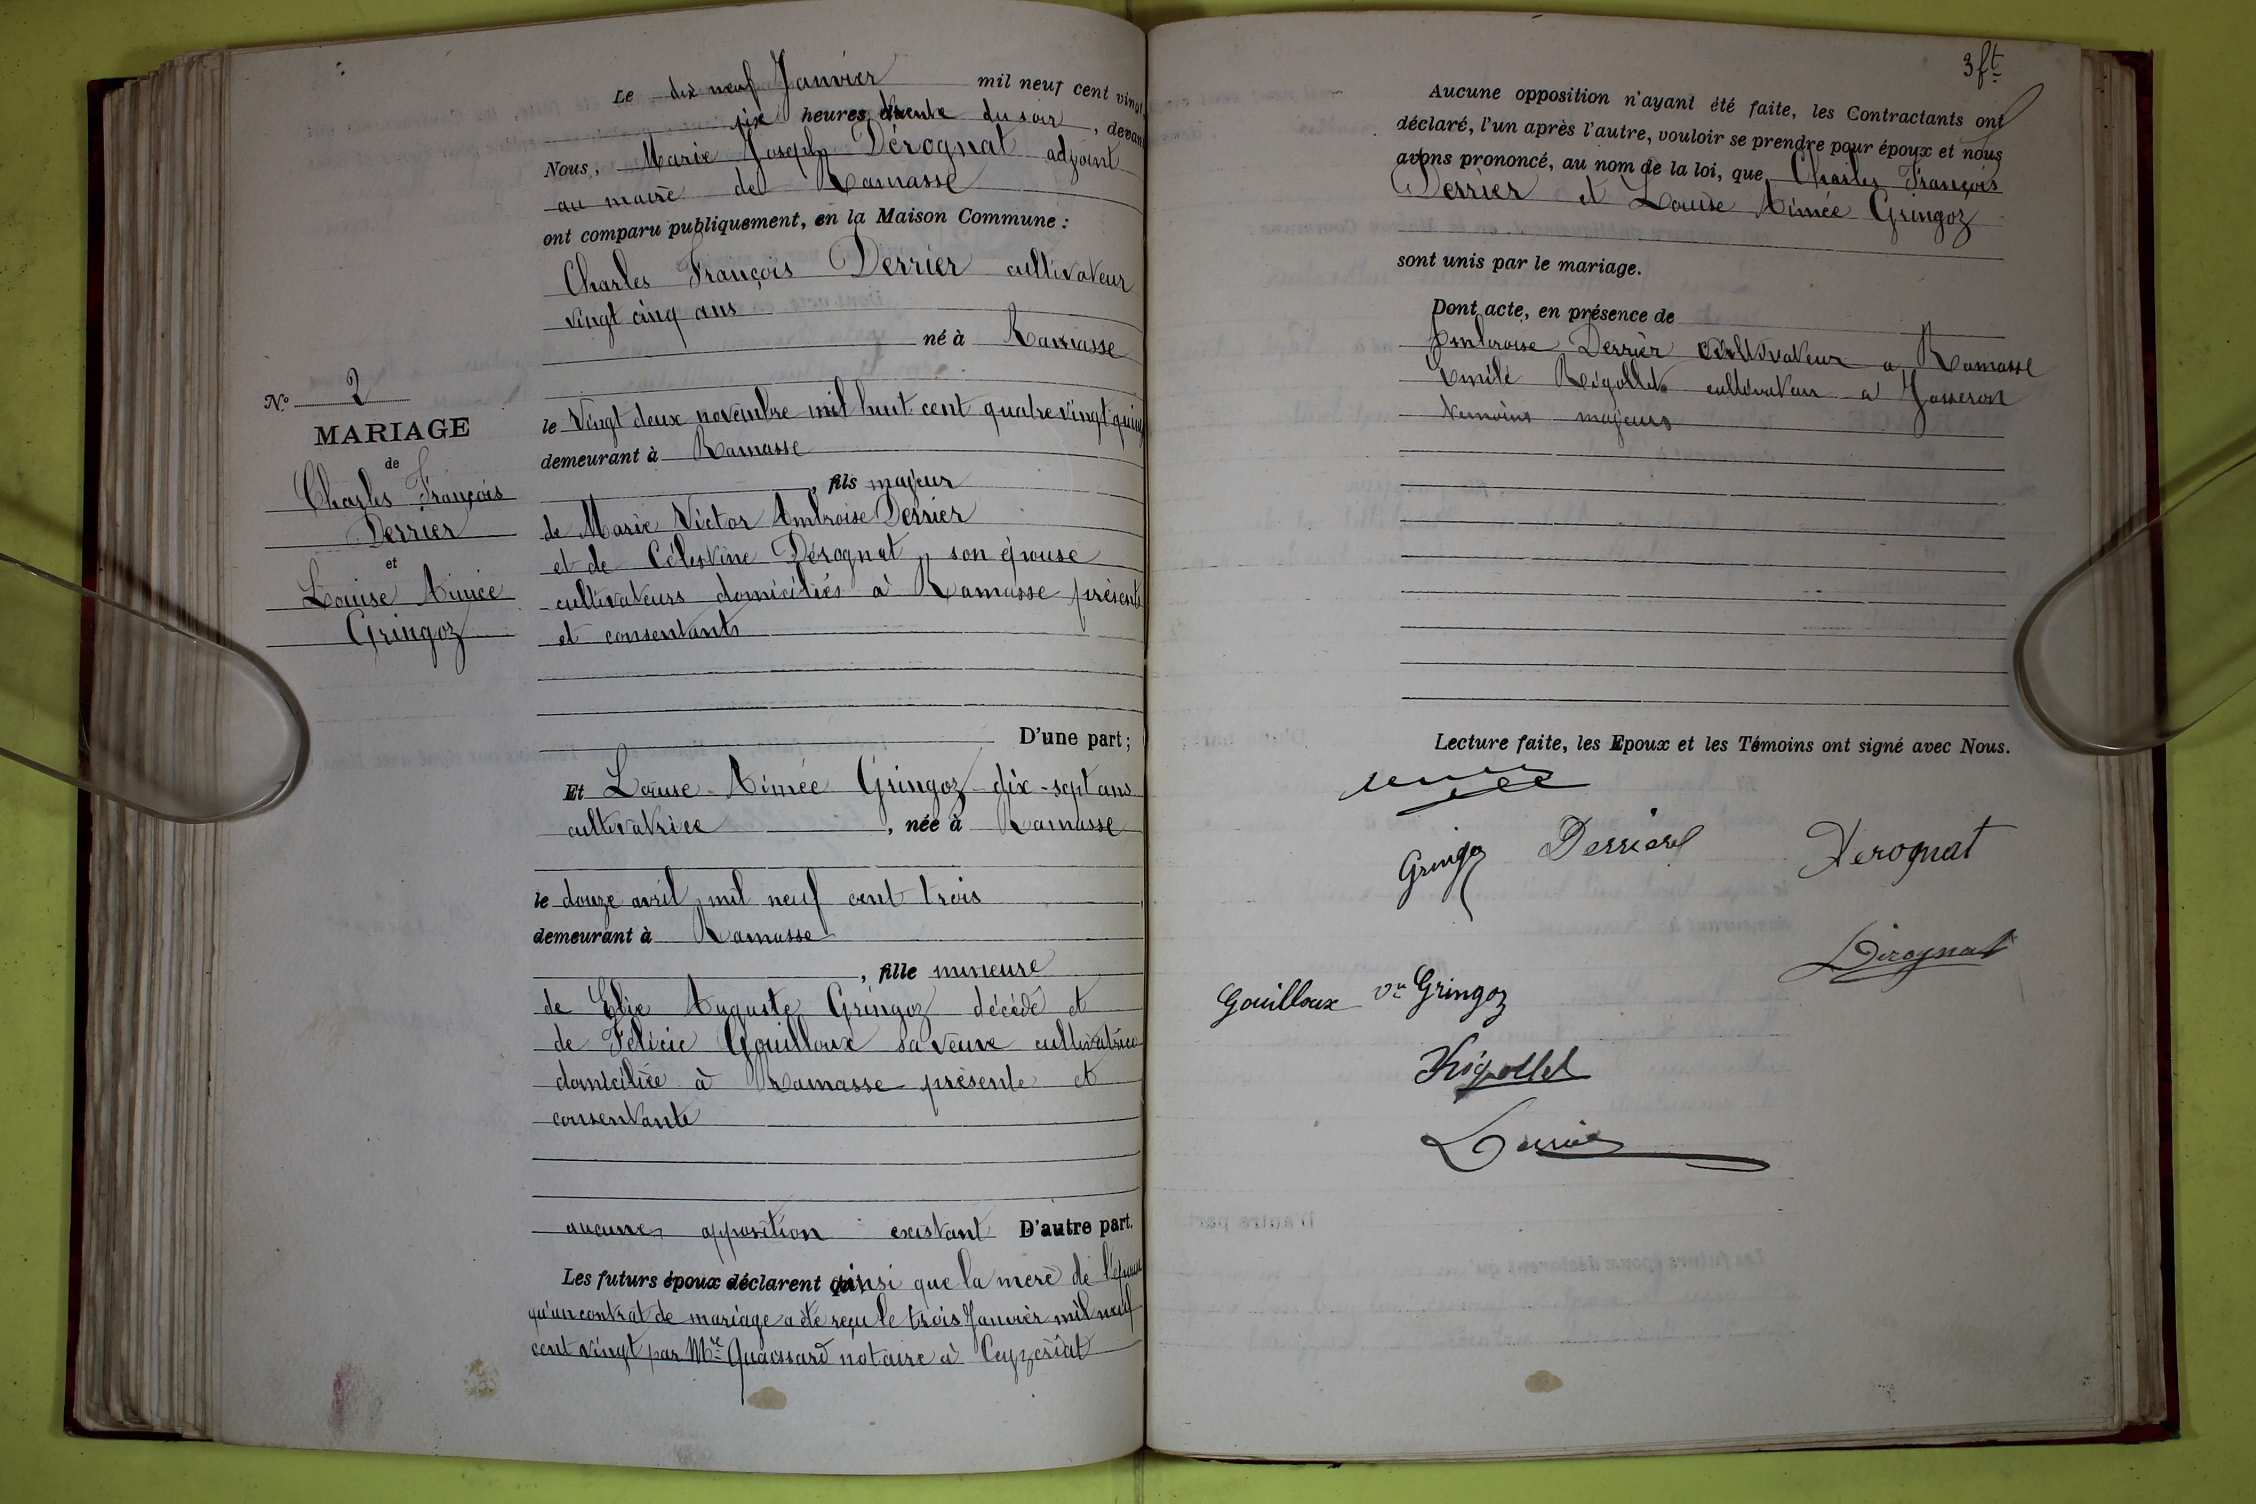 Le dix neuf Janvier mil neuf cent vingt
six heures trente du soir, devant
Nous, Marie Joseph Dérognat adjoint
au maire de Ramasse
ont comparu publiquement, en la Maison Commune :
Charles François Derrier cultivateur
vingt cinq ans
né à Ramasse
No 2
MARIAGE
de
Charles François
Derrier
et
Louise Aimée
Gringoz
le Vingt deux novembre mil huit cent quatre vingt quin
demeurant à Ramasse
, fils majeur
de Marie Victor Ambroise Derrier
et de Célestine Dérognat son épouse
cultivateurs domiciliés à Ramasse présents
et consentants
D'une part ;
Et Louise Aimée Gringoz dix-sept ans
cultivatrice , née à Ramasse
le douze avril mil neuf cent trois
demeurant à Ramasse
, fille mineure
de Elie Auguste Gringoz décédé et
de Félicie Gouilloux sa veuve cultivatrice
domiciliée à Ramasse présente et
consentante
aucune opposition existant D'autre part.
Les futurs époux déclarent ainsi que la mère de l'épouse
qu'un contrat de mariage a été reçu le trois Janvier mil neuf
cent vingt par Me notaire à Ceyzériat
3 ft
Aucune opposition n'ayant été faite, les Contractants ont
déclaré, l'un après l'autre, vouloir se prendre pour époux et nous
avons prononcé, au nom de la loi, que Charles François
Derrier et Louise Aimée Gringoz
sont unis par le mariage.
Dont acte, en présence de
Ambroise Derrier cultivateur a Ramasse
Emile Rigollet cultivateur a Jasseron
temoins majeurs
Lecture faite, les Epoux et les Témoins ont signé avec Nous.
Gringoz Derrier Derognat
Dérognat
Gouilloux ve Gringoz
Rigollet
Derrier